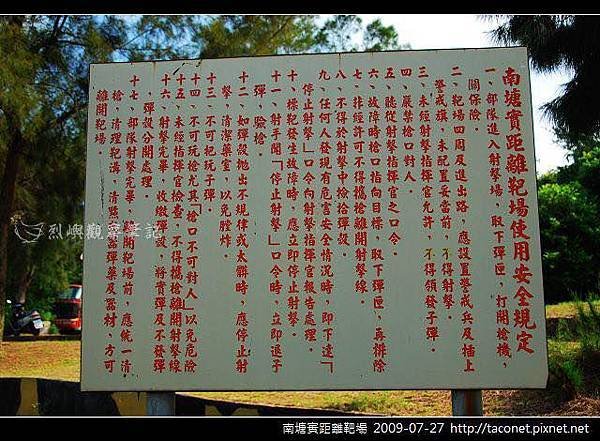 南塘實距離靶場
南塘實距離靶場使用安全規定
一、部隊進入射擊場，取下彈匣，打開槍機，
關保險。
二、靶場四周及進出路，應設置警戒兵及插上
警戒旗，未配置妥當前，不得射擊。
三、未經射擊指揮官允許，不得領發子彈。
四、嚴禁槍口對人。
五、聽從射擊指揮官之口令。
六、故障時槍口指向目標，取下彈匣，再排除
七、非經許可不得攜槍離開射擊線。
八、不得於射擊中撿拾彈殼。
九、任何人發現有危害安全情況時，即下達「
停止射擊」口令向射擊指揮官報告處理。
十、標靶發生故障時，應立即停止射擊。
十一、射手聞「停止射擊」口令時，立即退子
彈，驗槍。
十二、如彈殼拋出不規律或太髒時，應停止射
擊，清潔藥室，以免膛炸。
十三、不可把玩子彈。
十四、不可玩槍尤其「槍口不可對人」以免危險
十五、未經指揮官檢查，不得攜槍離開射擊線
十六、射擊完畢，收繳彈殼，將實彈及不發彈
，彈殼分開處理。
十七、部隊射擊完畢，離開靶場前，應統一清
槍，清理靶溝，清點武器彈藥及器材，方可
離開靶場。
烈嶼觀察筆記
南塘實距離靶場 2009-07-27 http://taconet.pixnet.net